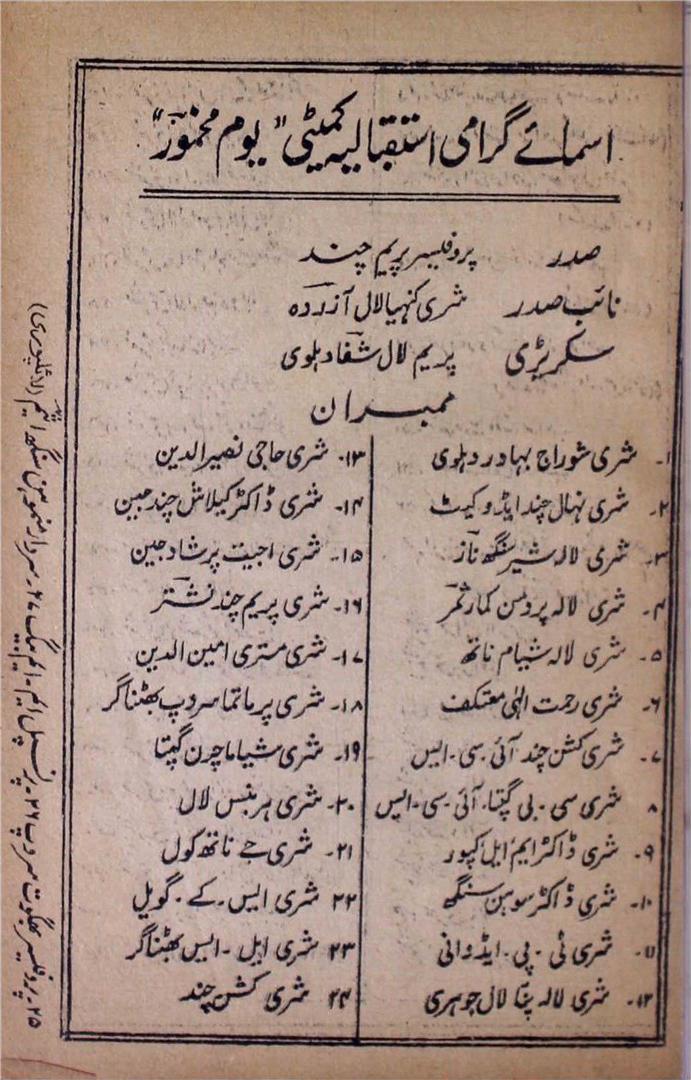 اسمائے گرامی استقبالیہ کمیٹی "یوم مخمور"
صدر پروفیسر پریم چند
نائب صدر شری کنہیا لال آزردہ
سکریٹری پریم لال شفا دہلوی
ممبران
۱۔ شری شوراج بہادر دہلوی
۲۔ شری نہال چند ایڈوکیٹ
۳۔ شری لالہ شیر سنگھ ناز
۴۔ شری لالہ پردمن کمار ثمر
۵۔ شری لالہ شیام ناتھ
۶۔ شری رحمت الٰہی معتکف
۷۔ شری کشن چند آئی۔سی۔ایس
۸۔ شری سی۔بی گپتا۔ آئی۔سی۔ایس
۹۔ شری ڈاکٹر ایم ایل کپور
۱۰۔ شری ڈاکٹر سوہن سنگھ
۱۱۔ شری ٹی۔پی۔ایڈوانی
۱۲۔ شری لالہ پنا لال جوہری
۱۳۔ شری حاجی نصیر الدین
۱۴۔ شری ڈاکٹر کیلاش چند جین
۱۵۔ شری اجیت پرشاد جین
۱۶۔ شری پریم چند نشتر
۱۷۔ شری مستری امین الدین
۱۸۔ شری پرماتما سروپ بھٹناگر
۱۹۔ شری شیاما چرن گپتا
۲۰۔ شری ہربنس لال
۲۱۔ شری جے ناتھ کول
۲۲ شری ایس۔کے۔گویل
۲۳ شری ایل۔ایس بھٹناگر
۲۴ شری کشن چند
۲۵۔ پروفیسر بھگوت سروپ ۲۶۔ پرنسپل ایم۔ایم بیگ ۲۷۔ سردار منموہن سنگھ (لائلپوری)